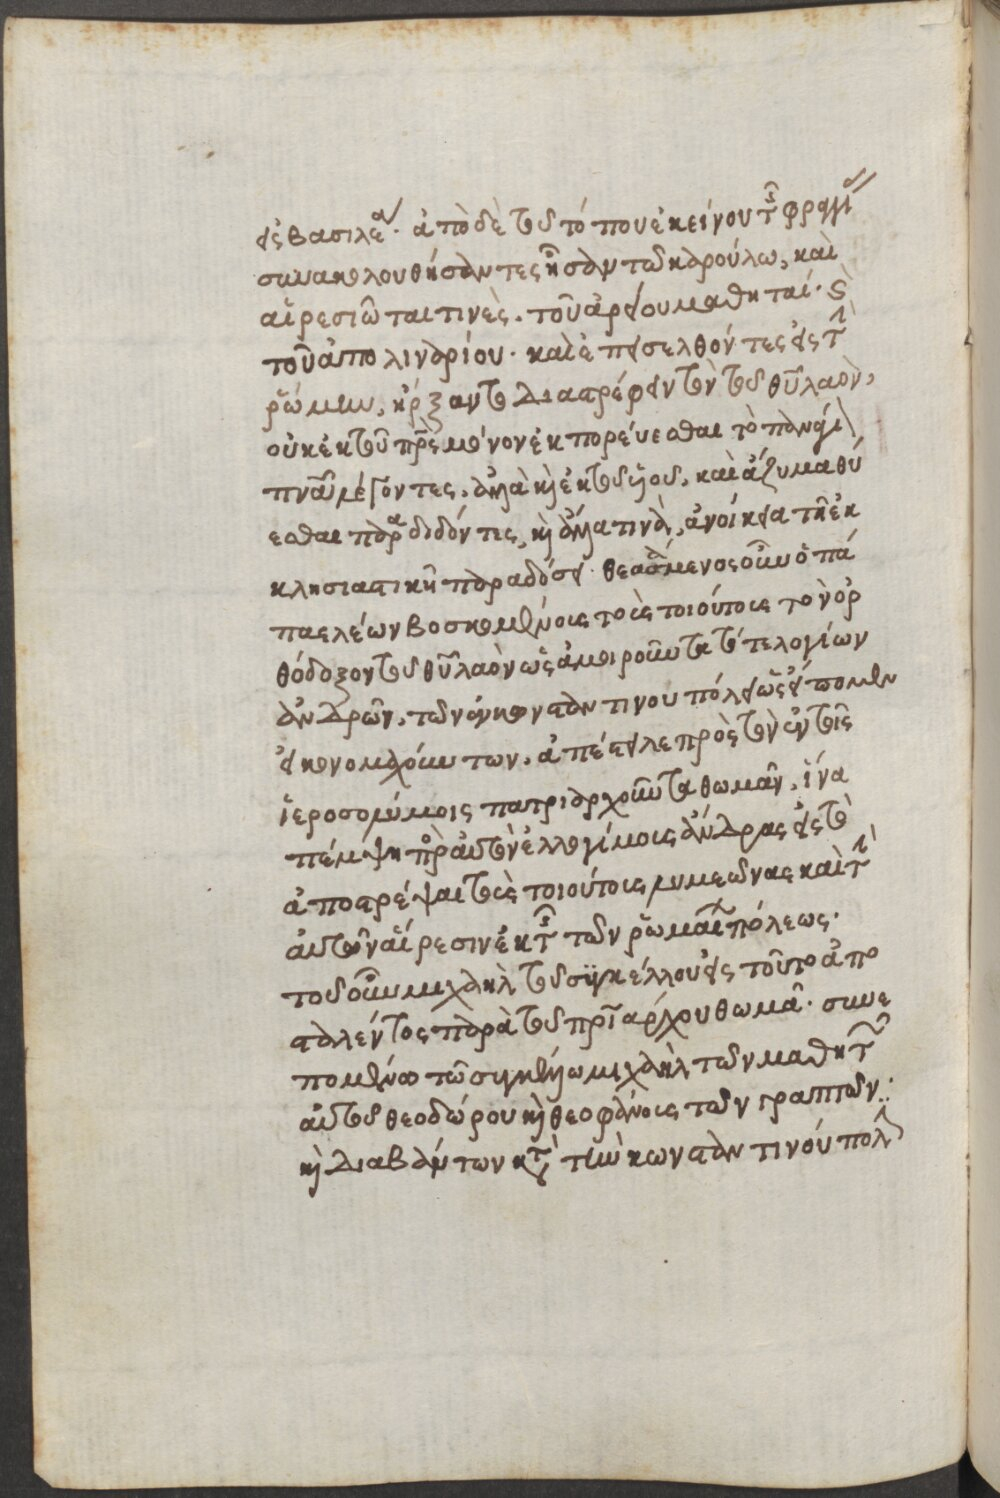 εἰς βασιλέα. ἀπὸ δὲ τοῦ τόπου ἐκείνου τῆς φραγγί
συνακολουθήσαντες ἦσαν τῶ καρούλω, καὶ
αἱρεσιῶται τινὲς. τοῦ ἀρείου μαθηταί. καὶ
τοῦ ἀπολιναρίου. καὶ ἐπεισελθόντες εἰς τὴν
ῥώμην, ἤρξαντο διαστρέφειν τὸν τοῦ θυ λαὸν,
οὐκ ἐκ τοῦ πρς μόνον ἐκπορεύεσθαι τὸ πανάγιον
πνα λέγοντες. ἀλλὰ καὶ ἐκ τοῦ υἱοῦ. καὶ ἄζυμα θύ
εσθαι παραδιδόντες, καὶ ἄλλα τινὰ, ἀνοίκεια τῆ ἐκ
κλησιαστικῆ παραδόσει. θεασάμενος οὖν ὁ πά
πας λέων βοσκομένοις τοῖς τοιούτοις τὸν ὀρ
θόδοξον τοῦ θυ λαὸν ὡς ἀμοιροῦντα τὲ τελογίων
ἀνδρῶν. τῶν ἐν κωνσταντινουπόλει ὡς εἴπομεν
εἰκονομάχούντων. ἀπέστειλε πρὸς τὸν ἐν τοῖς
ἱεροσολύμοις πατριαρχοῦντα θωμᾶν. ἵνα
πέμψη πρὸς αὐτὸν ἐλλογίμοις ἄνδρας εἰς τὸ
ἀποστρέψαι τοῖς τοιούτοις λυμεῶνας καὶ τὴν
αὐτῶν αἵρεσιν ἐκ τῆς τῶν ῥωμαίων πόλεως.
τοῦ οὖν μιχαὴλ τοῦ συγκέλλου εἰς τοῦτο ἀπο
σταλέντος παρὰ τοῦ πριάρχου θωμᾶ. συνε
πομένω τῶ συγκέλλω μιχαὴλ τῶν μαθητῶν
αὐτοῦ θεοδώρου καὶ θεοφάνοις τῶν γραπτῶν.
καὶ διαβάντων κατὰ τὴν κωνσταντινούπολ